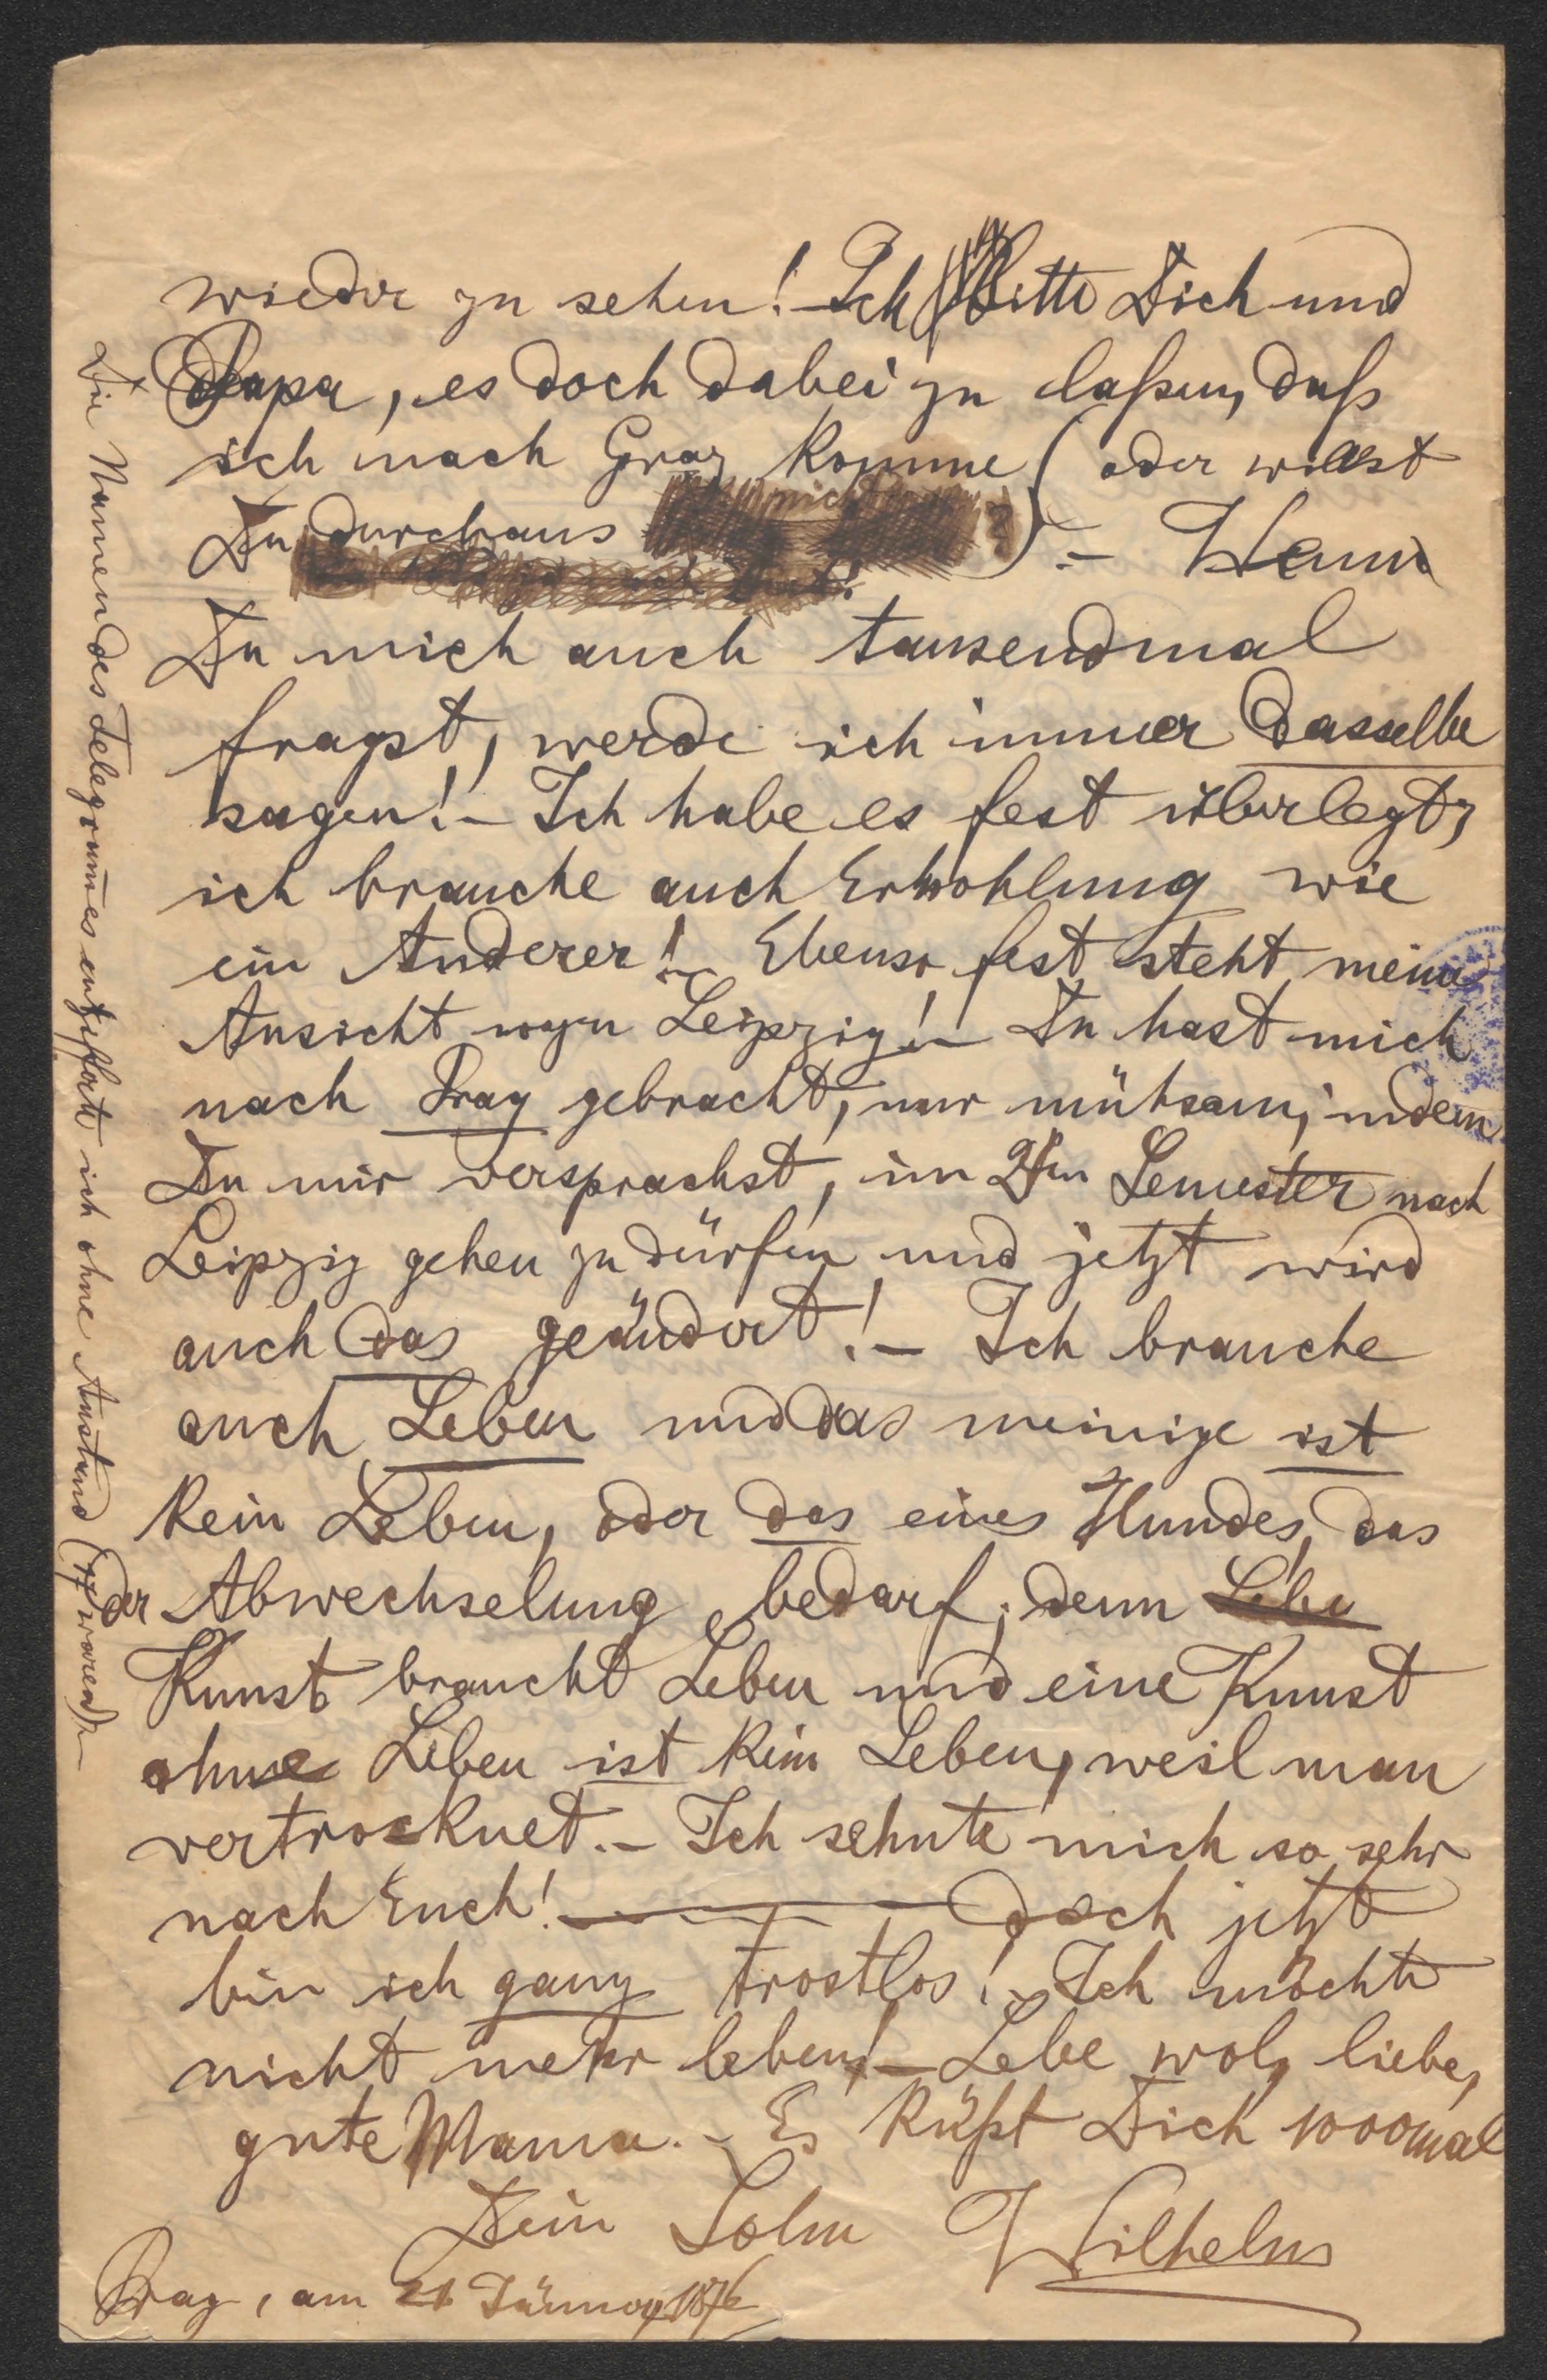 wieder zu sehen! Ich bitte Dich und
Papa, es doch dabei zu laßen, daß
ich nach Graz komme (oder willst
Du durchaus nicht ?) – Wenn
Du mich auch tausendmal
fragst, werde ich immer dasselbe
sagen! – Ich habe es fest überlegt,
ich brauche auch Erhohlung wie
ein Anderer! – Ebenso fest steht meine
Ansicht wegen Leipzig! – Du hast mich
nach Prag gebracht, nur mühsam, indem
Du mir versprachst, im 2ten Semester nach
Leipzig gehen zu dürfen und jetzt wird
auch das geändert! – Ich brauche
auch Leben und das meinige ist
kein Leben, oder das eines Hundes, das
der Abwechselung bedarf; denn Lebe
Kunst braucht Leben und eine Kunst
ohne Leben ist kein Leben, weil man
vertrocknet. – Ich sehnte mich so sehr
nach Euch! – doch jetzt
bin ich ganz trostlos! – Ich möchte
nicht mehr leben! – Lebe wol, liebe,
gute Mama. – Es küßt Dich 1000mal
Dein Sohn Wilhelm
Prag, am 21 Jänner 1876
Die Namen des Telegrames entzifferte ich ohne Anstand (waren) –